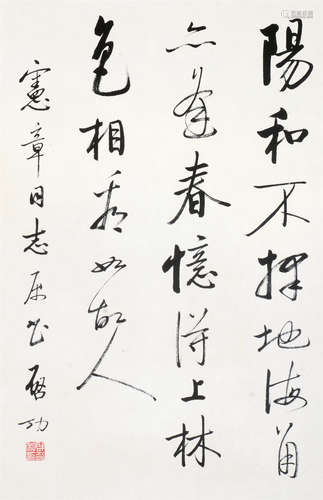 陽和不擇地海角
亦逢春憶得上林
色相看如故人
憲章同志屬書 啓功